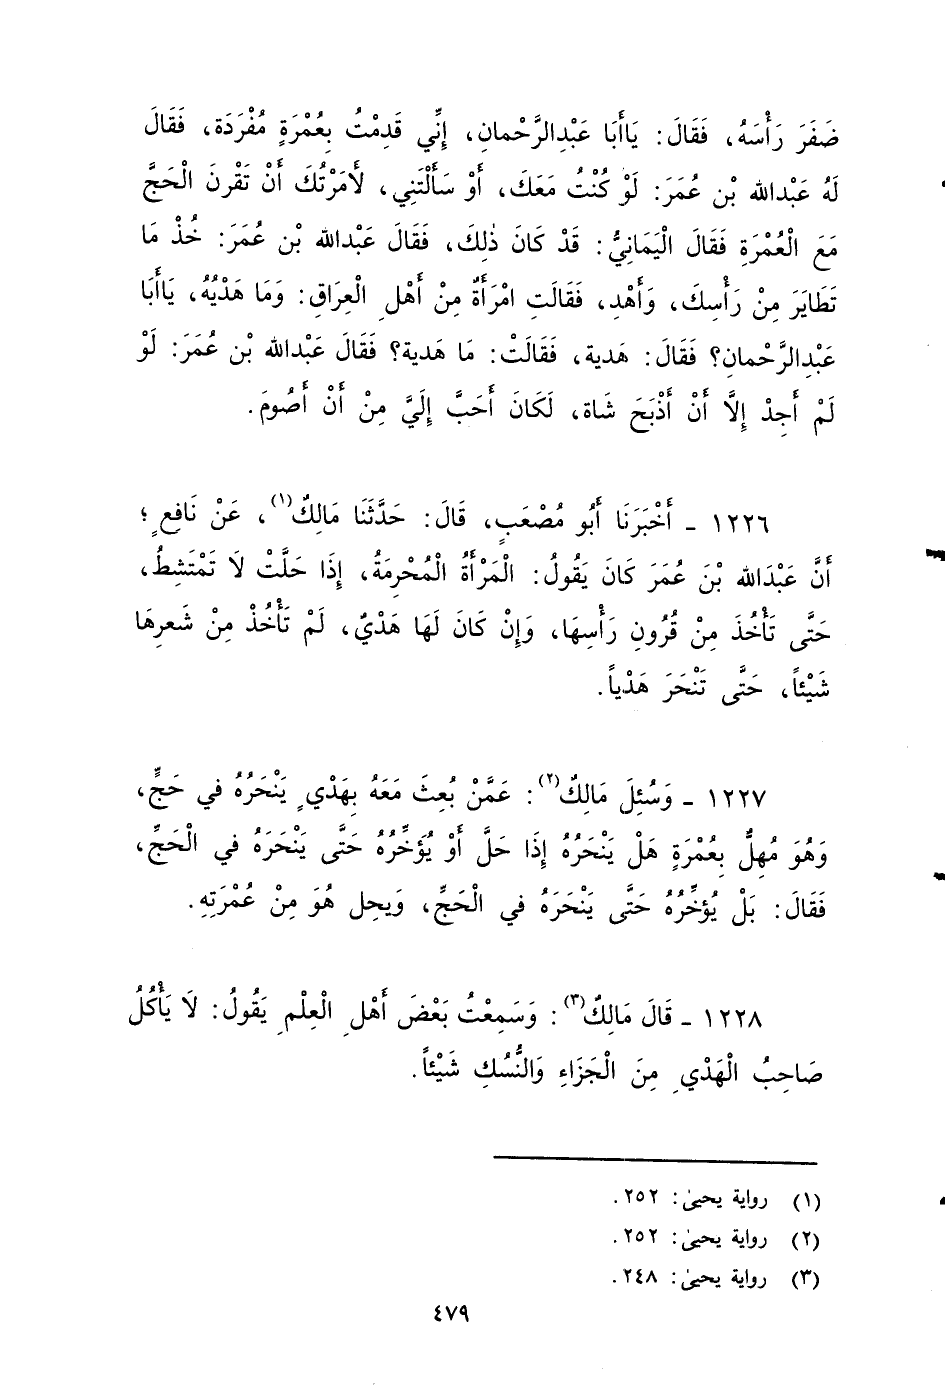 ضَفَرَ رَأْسَهُ، فَقَالَ: يَاأَبَا عَبْدِالرَّحْمانِ، إِنِّي قَدِمْتُ بِعُمْرَةٍ مُفْرَدَة، فَقَالَ
لَهُ عَبْدالله بْن عُمَرَ: لَوْ كُنْتُ مَعَكَ، أَوْ سَأَلْتَنِي، لأَمَرْتُكَ أَنْ تَقْرنَ الْحَجَّ
مَعَ الْعُمْرَةِ فَقَالَ الْيَمَانِيُّ: قَدْ كَانَ ذٰلِكَ، فَقَالَ عَبْدالله بْن عُمَرَ: خُذْ مَا
تَطَايَرَ مِنْ رَأْسِكَ، وَأَهْدِ، فَقَالَتِ امْرَأَةٌ مِنْ أَهْلِ الْعِرَاقِ: وَمَا هَدْيُهُ، يَاأَبَا
عَبْدِالرَّحْمانِ؟ فَقَالَ: هَدية، فَقَالَتْ: مَا هَدية؟ فَقَالَ عَبْدالله بْن عُمَرَ: لَوْ
لَمْ أَجِدْ إِلَّا أَنْ أَذْبَحَ شَاة، لَكَانَ أَحَبَّ إِلَيَّ مِنْ أَنْ أَصُومَ.
١٢٢٦ - أَخْبَرَنَا أَبُو مُصْعَبٍ، قَالَ: حَدَّثَنَا مَالِكٌ(١)، عَنْ نَافِعٍ؛
أَنَّ عَبْدَالله بْنَ عُمَرَ كَانَ يَقُولُ: الْمَرْأَةُ الْمُحْرِمَةُ، إِذَا حَلَّتْ لَا تَمْتَشِطُ،
حَتَّى تَأْخُذَ مِنْ قُرُونِ رَأْسِهَا، وَإِنْ كَانَ لَهَا هَدْيٌ، لَمْ تَأْخُذْ مِنْ شَعرِهَا
شَيْئاً، حَتَّى تَنْحَرَ هَدْياً.
١٢٢٧ - وَسُئِلَ مَالِكٌ(٢): عَمَّنْ بُعِثَ مَعَهُ بِهَدْيٍ يَنْحَرُهُ في حَجٍّ،
وَهُوَ مُهِلٌّ بِعُمْرَةٍ هَلْ يَنْحَرُهُ إِذَا حَلَّ أَوْ يُؤَخِّرُهُ حَتَّى يَنْحَرَهُ في الْحَجِّ،
فَقَالَ: بَلْ يُؤَخِّرُهُ حَتَّى يَنْحَرَهُ في الْحَجِّ، وَيحِل هُوَ مِنْ عُمْرَتِهِ.
١٢٢٨ - قَالَ مَالِكٌ(٣): وَسَمِعْتُ بَعْضَ أَهْلِ الْعِلْمِ يَقُولُ: لَا يَأْكُلُ
صَاحِبُ الْهَدْيِ مِنَ الْجَزَاءِ وَالنُّسُكِ شَيْئاً.
(١) رواية يحيىٰ: ٢٥٢.
(٢) رواية يحيىٰ: ٢٥٢.
(٣) رواية يحيىٰ: ٢٤٨.
٤٧٩